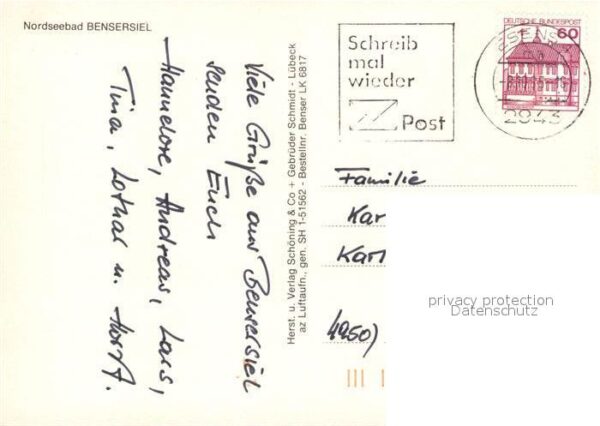 Nordseebad BENSERSIEL
Viele Grüße aus Bensersiel
senden Euch
Hannelore, Andreas, Lars,
Tina, Lothar u. Horst.
Herst. u. Verlag Schöning & Co + Gebrüder Schmidt - Lübeck
az Luftaufn., gen. SH 1-51562 - Bestellnr. Benser LK 6817
Schreib
mal
wieder
Post
DEUTSCHE BUNDESPOST
60
ESENS
2943
Familie
Kar
Karl
4950)
privacy protection
Datenschutz